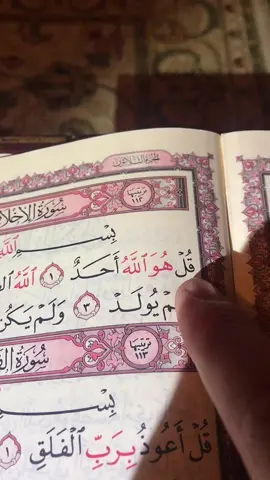 الجزء الثلاثون
سُورَةُ الإِخْلَا
ترتيبها ١١٢
بِسْــــمِ ٱللَّهِ
قُلْ هُوَ ٱللَّهُ أَحَدٌ ١ ٱللَّهُ ٱل
يُولَدْ ٣ وَلَمْ يَكُن
سُورَةُ الْفَ
ترتيبها ١١٣
بِسْــــمِ
قُلْ أَعُوذُ بِرَبِّ ٱلْفَلَقِ ١